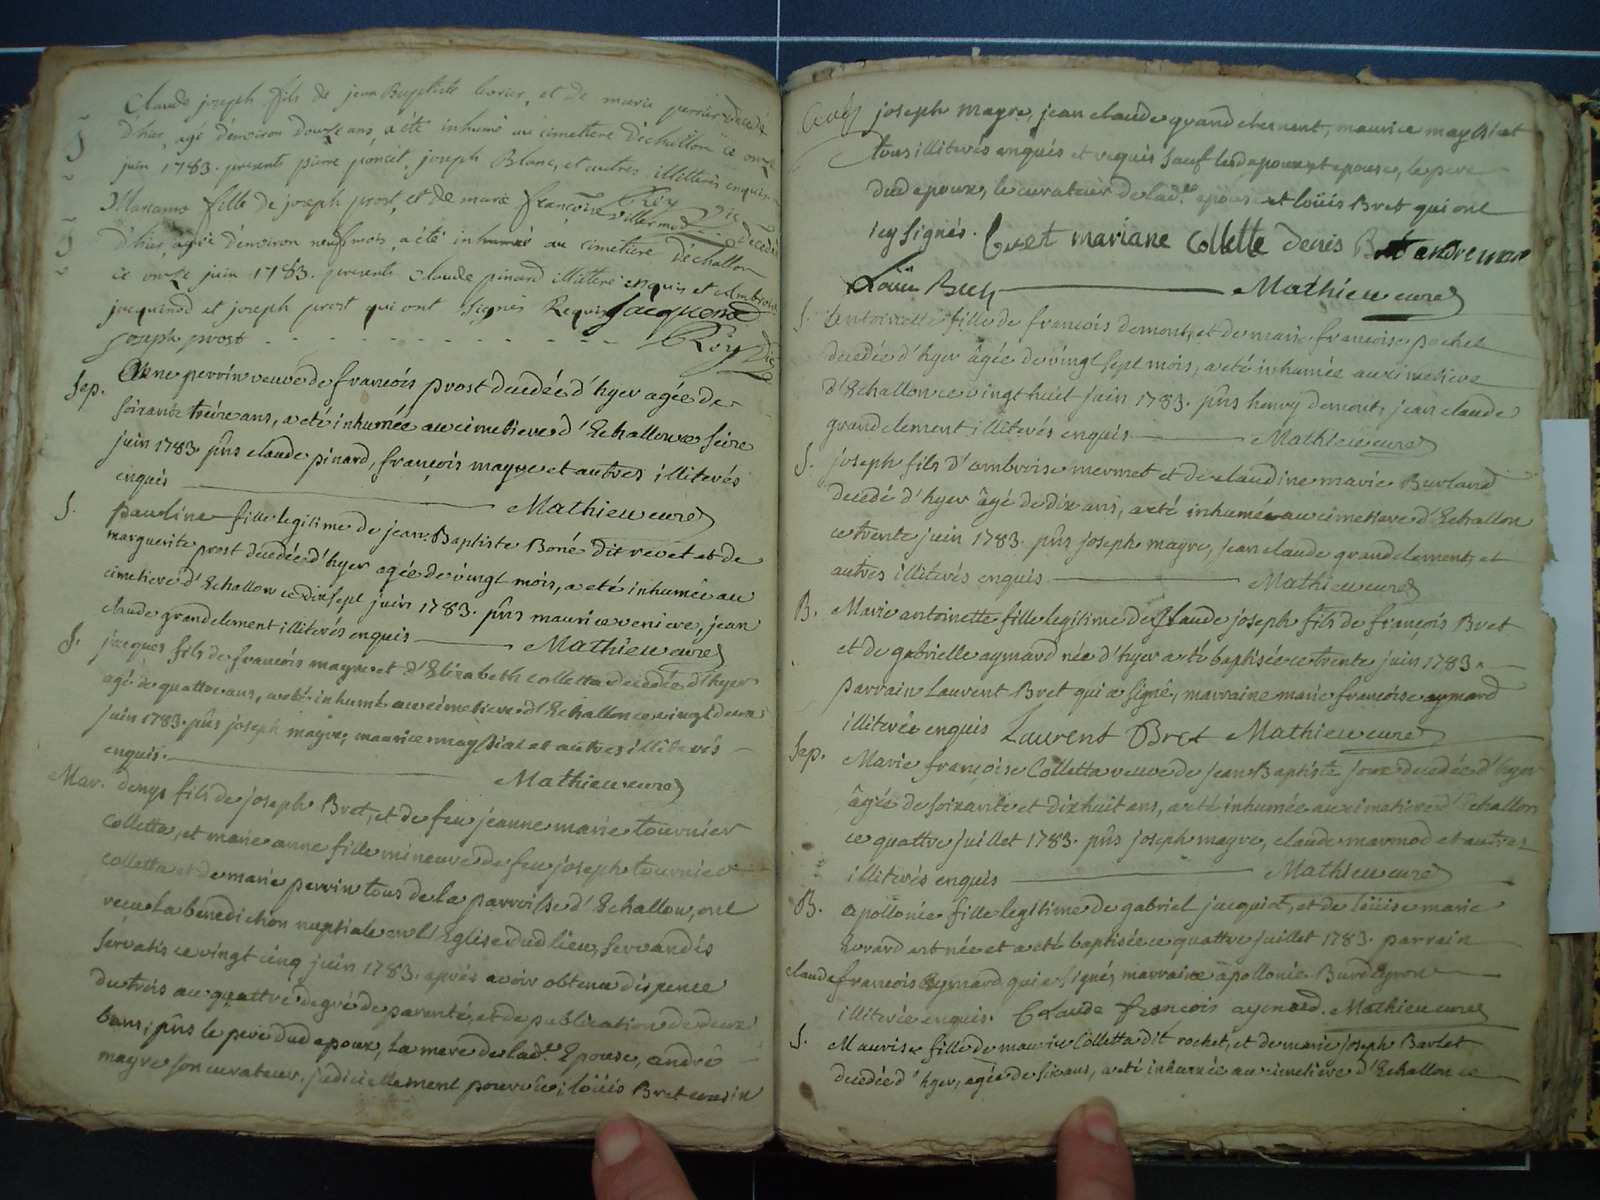 Claude joseph fils de jean Baptiste et de marie perrier decedé
S d'hier, agé d'environ douze ans, a été inhumé au cimettiere d'échallon ce onze
juin 1783. presents pierre poncet, joseph Blanc, et autres illitteres enquis
Rey vic
Marianne fille de joseph prost, et de marie françoise villermod decedée
S d'hier, agée d'environ neuf mois, a été inhumé au cimetiere d'échallon
ce onze juin 1783. presents claude pinard illitteré enquis et Ambroise
jacquinod et joseph prost qui ont signés Requis Jacquenod
joseph prost Rey vic
Sep. Anne perrin veuve de françois prost decedée d'hyer agée de
soixante treize ans, a eté inhumée au cimetiere d'Echallon ce seize
juin 1783. pñs claude pinard, françois mayre et autres illiterés
enquis Mathieu curé
S. pauline fille legitime de jean-Baptiste Boné dit revet et de
marguerite prost decedée d'hyer agée de vingt mois, a eté inhumée au
cimetiere d'Echallon ce dixsept juin 1783. pñs maurice veniere, jean
claude grandclement illiterés enquis Mathieu curé
S. jacques fils de françois mayre et d'Elizabeth colletta decedé d'hyer
agé de quattre ans, a eté inhumé au cimetiere d'Echallon ce vingt deux
juin 1783. pñs joseph mayre, maurice maysiat et autres illiterés
enquis. Mathieu curé
Mar. denys fils de joseph Bret, et de feu jeanne marie tournier
colletta, et marie anne fille mineure de feu joseph tournier
colletta et de marie perrin tous de la parroisse d'Echallon, ont
recu la benediction nuptiale en l'Eglise dud lieu, servandis
servatis ce vingt cinq juin 1783. après avoir obtenu dispence
du trois au quattre degré de parenté, et de publication de deux
bans; pñs le pere dud epoux, la mere de lad.te Epouse, andré
mayre son curateur judiciellement pourvû; loüis Bret cousin
joseph mayre, jean claude grandclement, maurice maysiat
tous illiterés enquis et requis sauf lesd epoux et epouse, le pere
dud epoux, le curateur de lad.te epouse et loüis Bret qui ont
icy signés. Bret mariane collette denis Bret andre mayre
Loüis Bret Mathieu curé
S. antoinette fille de françois demont, et de marie françoise pochet
decedée d'hyer âgée de vingt sept mois, a eté inhumée au cimetiere
d'Echallon ce vingt huit juin 1783. pñs henry demont, jean claude
grandclement illiterés enquis Mathieu curé
S. joseph fils d'ambroise mermet et de claudine marie Burland
decedé d'hyer âgé de dix ans, a eté inhumé au cimetiere d'Echallon
ce trente juin 1783. pñs joseph mayre, jean claude grandclement, et
autres illiterés enquis Mathieu curé
B. Marie antoinette fille legitime de Claude joseph fils de françois Bret
et de gabrielle aymard née d'hyer a eté baptisée ce trente juin 1783.
parrain Laurent Bret qui a signé, marraine marie françoise aymard
illiterée enquis Laurent Bret Mathieu curé
Sep. Marie françoise Colletta veuve de jean Baptiste decedée d'hyer
âgée de soixante et dixhuit ans, a eté inhumée au cimetiere d'Echallon
ce quattre juillet 1783. pñs joseph mayre, claude marmod et autres
illiterés enquis Mathieu curé
B. apollonie fille legitime de gabriel jacquiot, et de loüise marie
evrard est née et a eté baptisée ce quattre juillet 1783. parrain
claude françois aymard qui a signé, marraine apollonie Burdeyron
illiterée enquis. Claude françois aymard. Mathieu curé
S. Maurise fille de maurice Colletta dit rochet, et de marie joseph Barlet
decedée d'hyer, agée de six ans, a eté inhumée au cimetiere d'Echallon ce